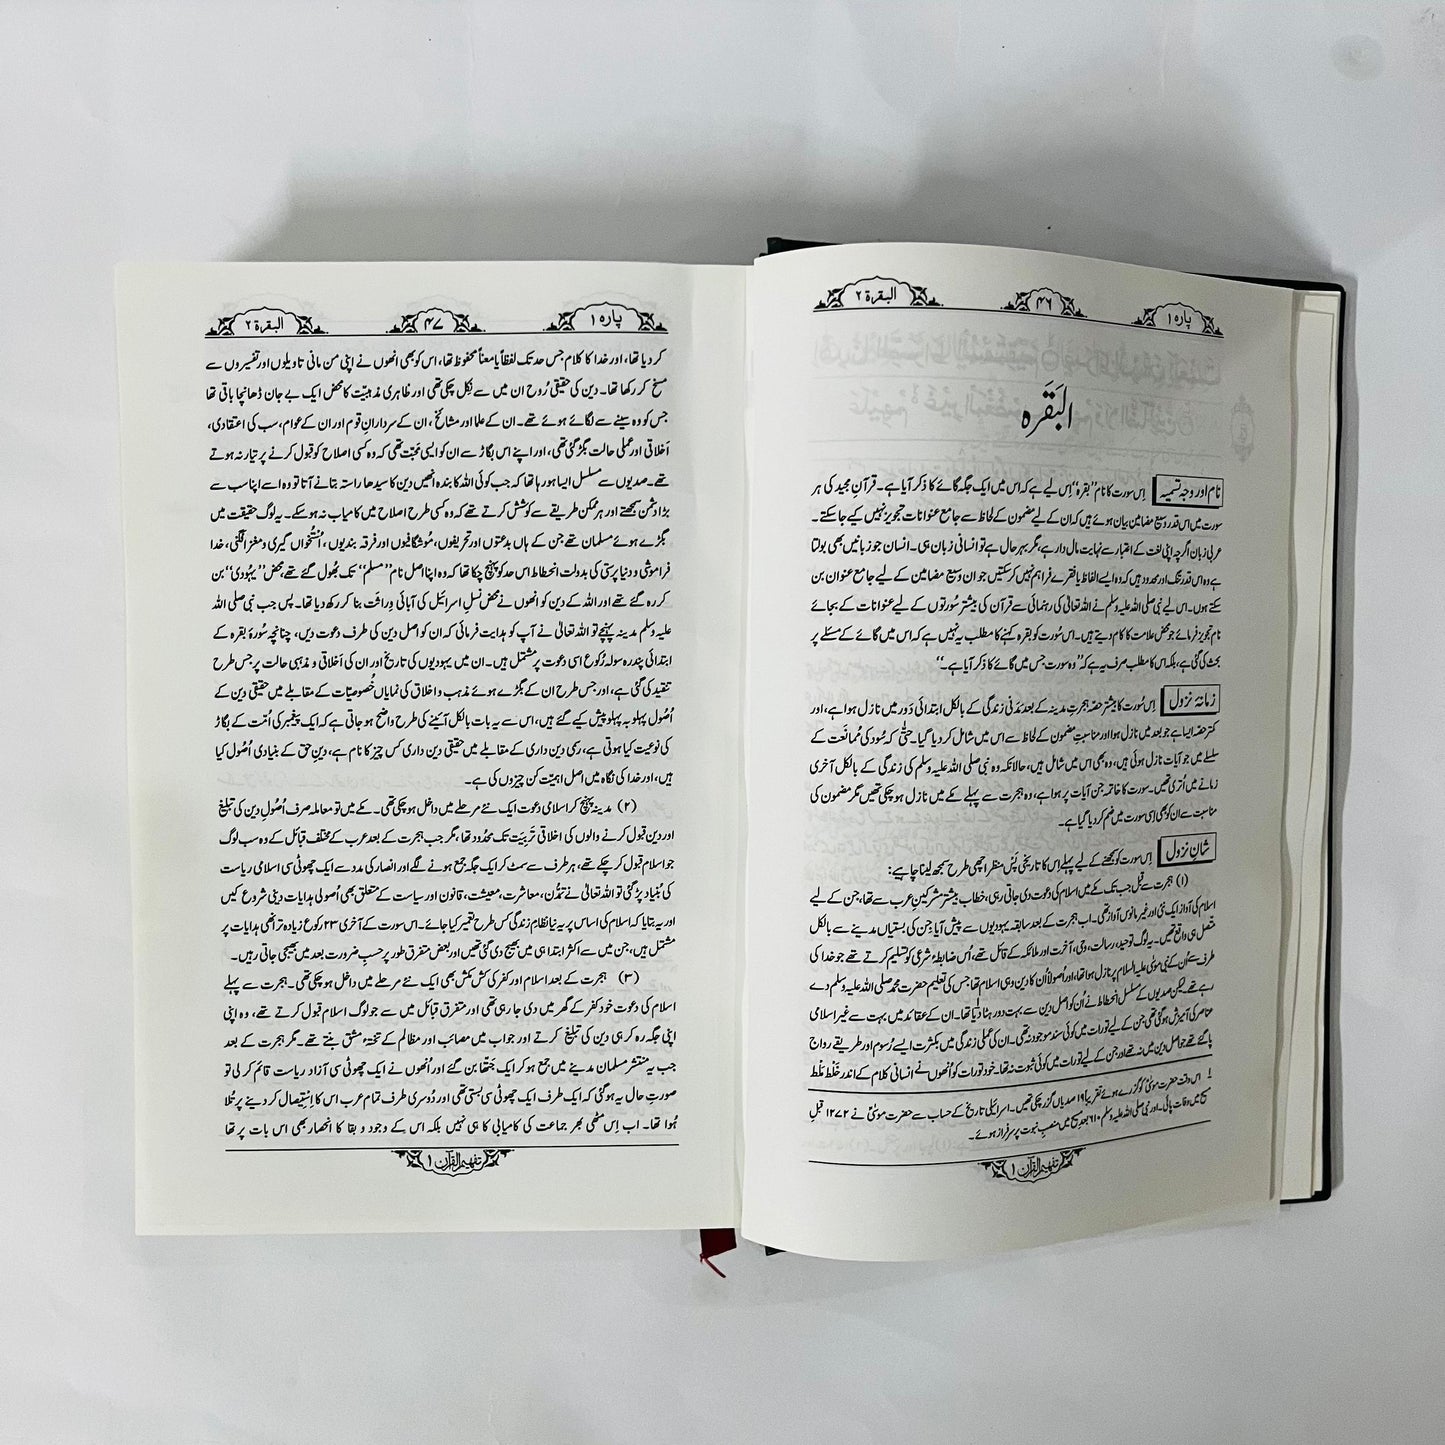 پارہ ۱
۴۶
البقرۃ ۲
البَقَرَہ
نام اور وجہ تسمیہ اِس سورت کا نام ”بقرہ“ اِس لیے ہے کہ اس میں ایک جگہ گائے کا ذکر آیا ہے۔ قرآنِ مجید کی ہر
سورت میں اس قدر وسیع مضامین بیان ہوئے ہیں کہ ان کے لیے مضمون کے لحاظ سے جامع عنوانات تجویز نہیں کیے جا سکتے۔
عربی زبان اگرچہ اپنی لغت کے اعتبار سے نہایت مال دار ہے، مگر بہر حال ہے تو انسانی زبان ہی۔ انسان جو زبانیں بھی بولتا
ہے وہ اس قدر تنگ اور محدود ہیں کہ وہ ایسے الفاظ یا فقرے فراہم نہیں کر سکتیں جو ان وسیع مضامین کے لیے جامع عنوان بن
سکتے ہوں۔ اس لیے نبی صلی اللہ علیہ وسلم نے اللہ تعالیٰ کی رہنمائی سے قرآن کی بیشتر سورتوں کے لیے عنوانات کے بجائے
نام تجویز فرمائے جو محض علامت کا کام دیتے ہیں۔ اس سُورت کو بقرہ کہنے کا مطلب یہ نہیں ہے کہ اس میں گائے کے مسئلے پر
بحث کی گئی ہے، بلکہ اس کا مطلب صرف یہ ہے کہ ”وہ سورت جس میں گائے کا ذکر آیا ہے۔“
زمانۂ نزول اِس سُورت کا بیشتر حصّہ ہجرتِ مدینہ کے بعد مَدنی زندگی کے بالکل ابتدائی دَور میں نازل ہوا ہے، اور
کمتر حصّہ ایسا ہے جو بعد میں نازل ہوا اور مناسبتِ مضمون کے لحاظ سے اس میں شامل کر دیا گیا۔ حتّٰی کہ سُود کی مُمانَعت کے
سلسلے میں جو آیات نازل ہوئی ہیں، وہ بھی اس میں شامل ہیں، حالانکہ وہ نبی صلی اللہ علیہ وسلم کی زندگی کے بالکل آخری
زمانے میں اُتری تھیں۔ سورت کا خاتمہ جن آیات پر ہوا ہے، وہ ہجرت سے پہلے مکے میں نازل ہو چکی تھیں مگر مضمون کی
مناسبت سے ان کو بھی اِسی سورت میں ضم کر دیا گیا ہے۔
شانِ نزول اِس سورت کو سمجھنے کے لیے پہلے اِس کا تاریخی پَس منظر اچھی طرح سمجھ لینا چاہیے:
(۱) ہجرت سے قبل جب تک مکے میں اسلام کی دعوت دی جاتی رہی، خطاب بیشتر مشرکینِ عرب سے تھا، جن کے لیے
اسلام کی آواز ایک نئی اور غیر مانوس آواز تھی۔ اب ہجرت کے بعد سابقہ یہودیوں سے پیش آیا جن کی بستیاں مدینے سے بالکل
متصل ہی واقع تھیں۔ یہ لوگ توحید، رسالت، وحی، آخرت اور ملائکہ کے قائل تھے، اُس ضابطۂ شرعی کو تسلیم کرتے تھے جو خدا کی
طرف سے اُن کے نبی موسٰی علیہ السلام پر نازل ہوا تھا، اور اصولاً اُن کا دین وہی اسلام تھا جس کی تعلیم حضرت محمد صلی اللہ علیہ وسلم دے
رہے تھے۔ لیکن صدیوں کے مسلسل انحطاط نے اُن کو اصل دین سے بہت دور ہٹا دیا تھا۔ ان کے عقائد میں بہت سے غیر اسلامی
عناصر کی آمیزش ہو گئی تھی جن کے لیے تورات میں کوئی سند موجود نہ تھی۔ ان کی عملی زندگی میں بکثرت ایسے رُسوم اور طریقے رواج
پا گئے تھے جو اصل دین میں نہ تھے اور جن کے لیے تورات میں کوئی ثبوت نہ تھا۔ خود تورات کو اُنھوں نے انسانی کلام کے اندر خَلْط مَلْط
۱ اس وقت حضرت موسٰیؑ کو گزرے ہوئے تقریباً ۱۹ صدیاں گزر چکی تھیں۔ اسرائیلی تاریخ کے حساب سے حضرت موسٰیؑ نے ۱۲۷۲ قبلِ
مسیح میں وفات پائی۔ اور نبی صلی اللہ علیہ وسلم ۶۱۰ بعدِ مسیح میں منصبِ نبوت پر سرفراز ہوئے۔
تفہیم القرآن ۱
پارہ ۱
۴۷
البقرۃ ۲
کر دیا تھا، اور خدا کا کلام جس حد تک لفظاً یا معناً محفوظ تھا، اس کو بھی انھوں نے اپنی من مانی تاویلوں اور تفسیروں سے
مسخ کر رکھا تھا۔ دین کی حقیقی رُوح ان میں سے نِکل چکی تھی اور ظاہری مذہبیّت کا محض ایک بے جان ڈھانچا باقی تھا
جس کو وہ سینے سے لگائے ہوئے تھے۔ ان کے علما اور مشائخ، ان کے سردارانِ قوم اور ان کے عوام، سب کی اعتقادی،
اَخلاقی اور عملی حالت بگڑ گئی تھی، اور اپنے اس بگاڑ سے ان کو ایسی مَحبّت تھی کہ وہ کسی اصلاح کو قبول کرنے پر تیار نہ ہوتے
تھے۔ صدیوں سے مسلسل ایسا ہو رہا تھا کہ جب کوئی اللہ کا بندہ انھیں دین کا سیدھا راستہ بتانے آتا تو وہ اسے اپنا سب سے
بڑا دشمن سمجھتے اور ہر ممکن طریقے سے کوشش کرتے تھے کہ وہ کسی طرح اصلاح میں کامیاب نہ ہو سکے۔ یہ لوگ حقیقت میں
بگڑے ہوئے مسلمان تھے جن کے ہاں بدعتوں اور تحریفوں، مُوشگافیوں اور فرقہ بندیوں، اُستُخواں گیری و مغز افگنی، خدا
فراموشی و دنیا پرستی کی بدولت انحطاط اس حد کو پہنچ چکا تھا کہ وہ اپنا اصل نام ”مسلم“ تک بھُول گئے تھے، محض ”یہُودی“ بن
کر رہ گئے تھے اور اللہ کے دین کو انھوں نے محض نسلِ اسرائیل کی آبائی وِراثت بنا کر رکھ دیا تھا۔ پس جب نبی صلی اللہ
علیہ وسلم مدینہ پہنچے تو اللہ تعالیٰ نے آپ کو ہدایت فرمائی کہ ان کو اصل دین کی طرف دعوت دیں، چنانچہ سُورۂ بقرہ کے
ابتدائی پندرہ سولہ رُکوع اسی دعوت پر مشتمل ہیں۔ ان میں یہودیوں کی تاریخ اور ان کی اَخلاقی و مذہبی حالت پر جس طرح
تنقید کی گئی ہے، اور جس طرح ان کے بگڑے ہوئے مذہب و اخلاق کی نمایاں خُصوصیّات کے مقابلے میں حقیقی دین کے
اُصُول پہلو بہ پہلو پیش کیے گئے ہیں، اس سے یہ بات بالکل آئینے کی طرح واضح ہو جاتی ہے کہ ایک پیغمبر کی اُمّت کے بگاڑ
کی نوعیت کیا ہوتی ہے، رسمی دین داری کے مقابلے میں حقیقی دین داری کس چیز کا نام ہے، دینِ حق کے بنیادی اُصول کیا
ہیں، اور خدا کی نگاہ میں اصل اہمیّت کن چیزوں کی ہے۔
(۲) مدینہ پہنچ کر اسلامی دعوت ایک نئے مرحلے میں داخل ہو چکی تھی۔ مکے میں تو معاملہ صرف اُصُولِ دین کی تبلیغ
اور دین قبول کرنے والوں کی اخلاقی تربیّت تک محدُود تھا، مگر جب ہجرت کے بعد عرب کے مختلف قبائل کے وہ سب لوگ
جو اسلام قبول کر چکے تھے، ہر طرف سے سمٹ کر ایک جگہ جمع ہونے لگے اور انصار کی مدد سے ایک چھوٹی سی اسلامی ریاست
کی بُنیاد پڑ گئی تو اللہ تعالیٰ نے تمدُّن، معاشرت، معیشت، قانون اور سیاست کے متعلق بھی اُصولی ہدایات دینی شروع کیں
اور یہ بتایا کہ اسلام کی اساس پر یہ نیا نظامِ زندگی کس طرح تعمیر کیا جائے۔ اس سورت کے آخری ۲۳ رکوع زیادہ تر انھی ہدایات پر
مشتمل ہیں، جن میں سے اکثر ابتدا ہی میں بھیج دی گئی تھیں اور بعض متفرق طور پر حسبِ ضرورت بعد میں بھیجی جاتی رہیں۔
(۳) ہجرت کے بعد اسلام اور کفر کی کش مکش بھی ایک نئے مرحلے میں داخل ہو چکی تھی۔ ہجرت سے پہلے
اسلام کی دعوت خود کفر کے گھر میں دی جا رہی تھی اور متفرق قبائل میں سے جو لوگ اسلام قبول کرتے تھے، وہ اپنی
اپنی جگہ رہ کر ہی دین کی تبلیغ کرتے اور جواب میں مصائب اور مظالم کے تختۂ مشق بنتے تھے۔ مگر ہجرت کے بعد
جب یہ منتشر مسلمان مدینے میں جمع ہو کر ایک جَتھّا بن گئے اور اُنھوں نے ایک چھوٹی سی آزاد ریاست قائم کر لی تو
صورتِ حال یہ ہو گئی کہ ایک طرف ایک چھوٹی سی بستی تھی اور دُوسری طرف تمام عرب اس کا اِستیصال کر دینے پر تُلا
ہُوا تھا۔ اب اِس مٹھی بھر جماعت کی کامیابی کا ہی نہیں بلکہ اس کے وجود و بقا کا انحصار بھی اس بات پر تھا
تفہیم القرآن ۱